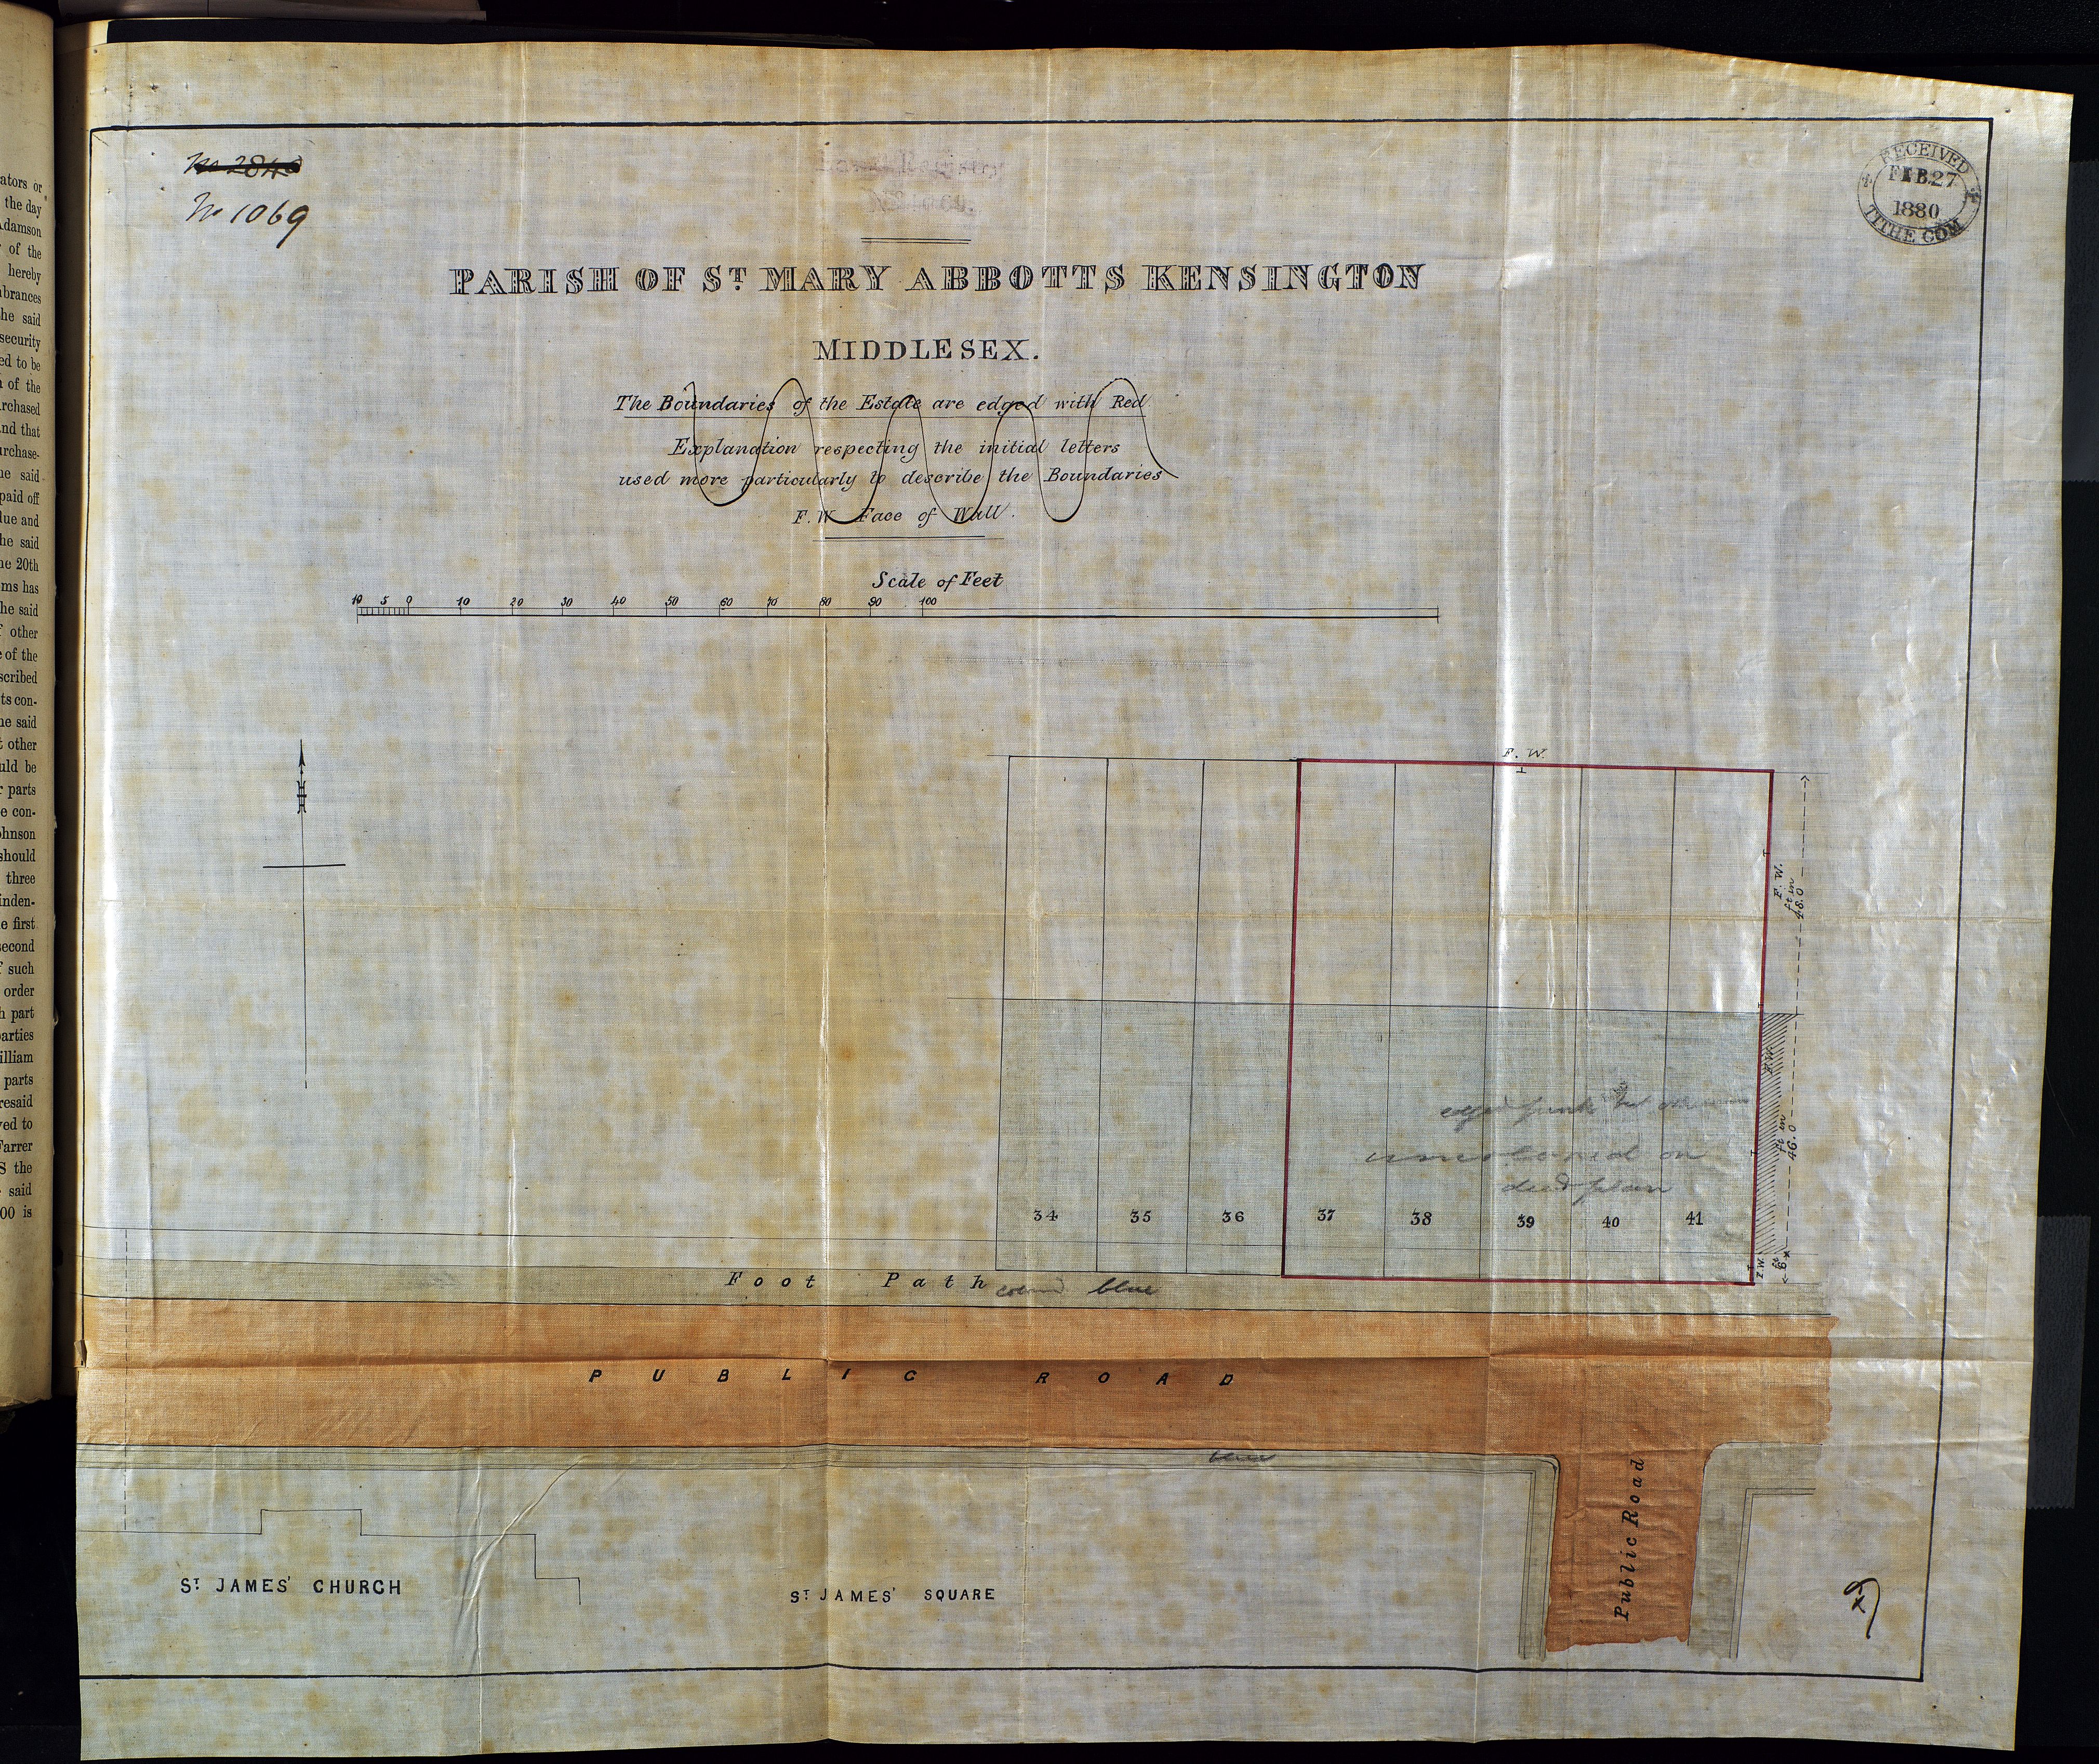 ators or
the day
Adamson
of the
hereby
brances
he said
security
ed to be
of the
rchased
nd that
urchase-
ue said
paid off
lue and
he said
he 20th
ms has
he said
other
of the
scribed
ts con-
he said
other
uld be
parts
e con-
ohnson
should
three
inden-
e first
second
such
order
h part
parties
illiam
parts
resaid
ved to
Farrer
S the
said
00 is
No 1069
RECEIVED
FEB. 27
1880
TITHE COM
PARISH OF ST. MARY ABBOTTS KENSINGTON
MIDDLESEX.
The Boundaries of the Estate are edged with Red
Explanation respecting the initial letters
used more particularly to describe the Boundaries
F.W Face of Wall.
Scale of Feet
10 5 0 10 20 30 40 50 60 70 80 90 100
F. W.
F. W.
ft in
48.0
F.W.
ft in
46.0
uncoloured on
deed plan
34 35 36 37 38 39 40 41
F.W.
ft
6
Foot Path
blue
PUBLIC ROAD
Public Road
ST. JAMES' CHURCH
ST. JAMES' SQUARE